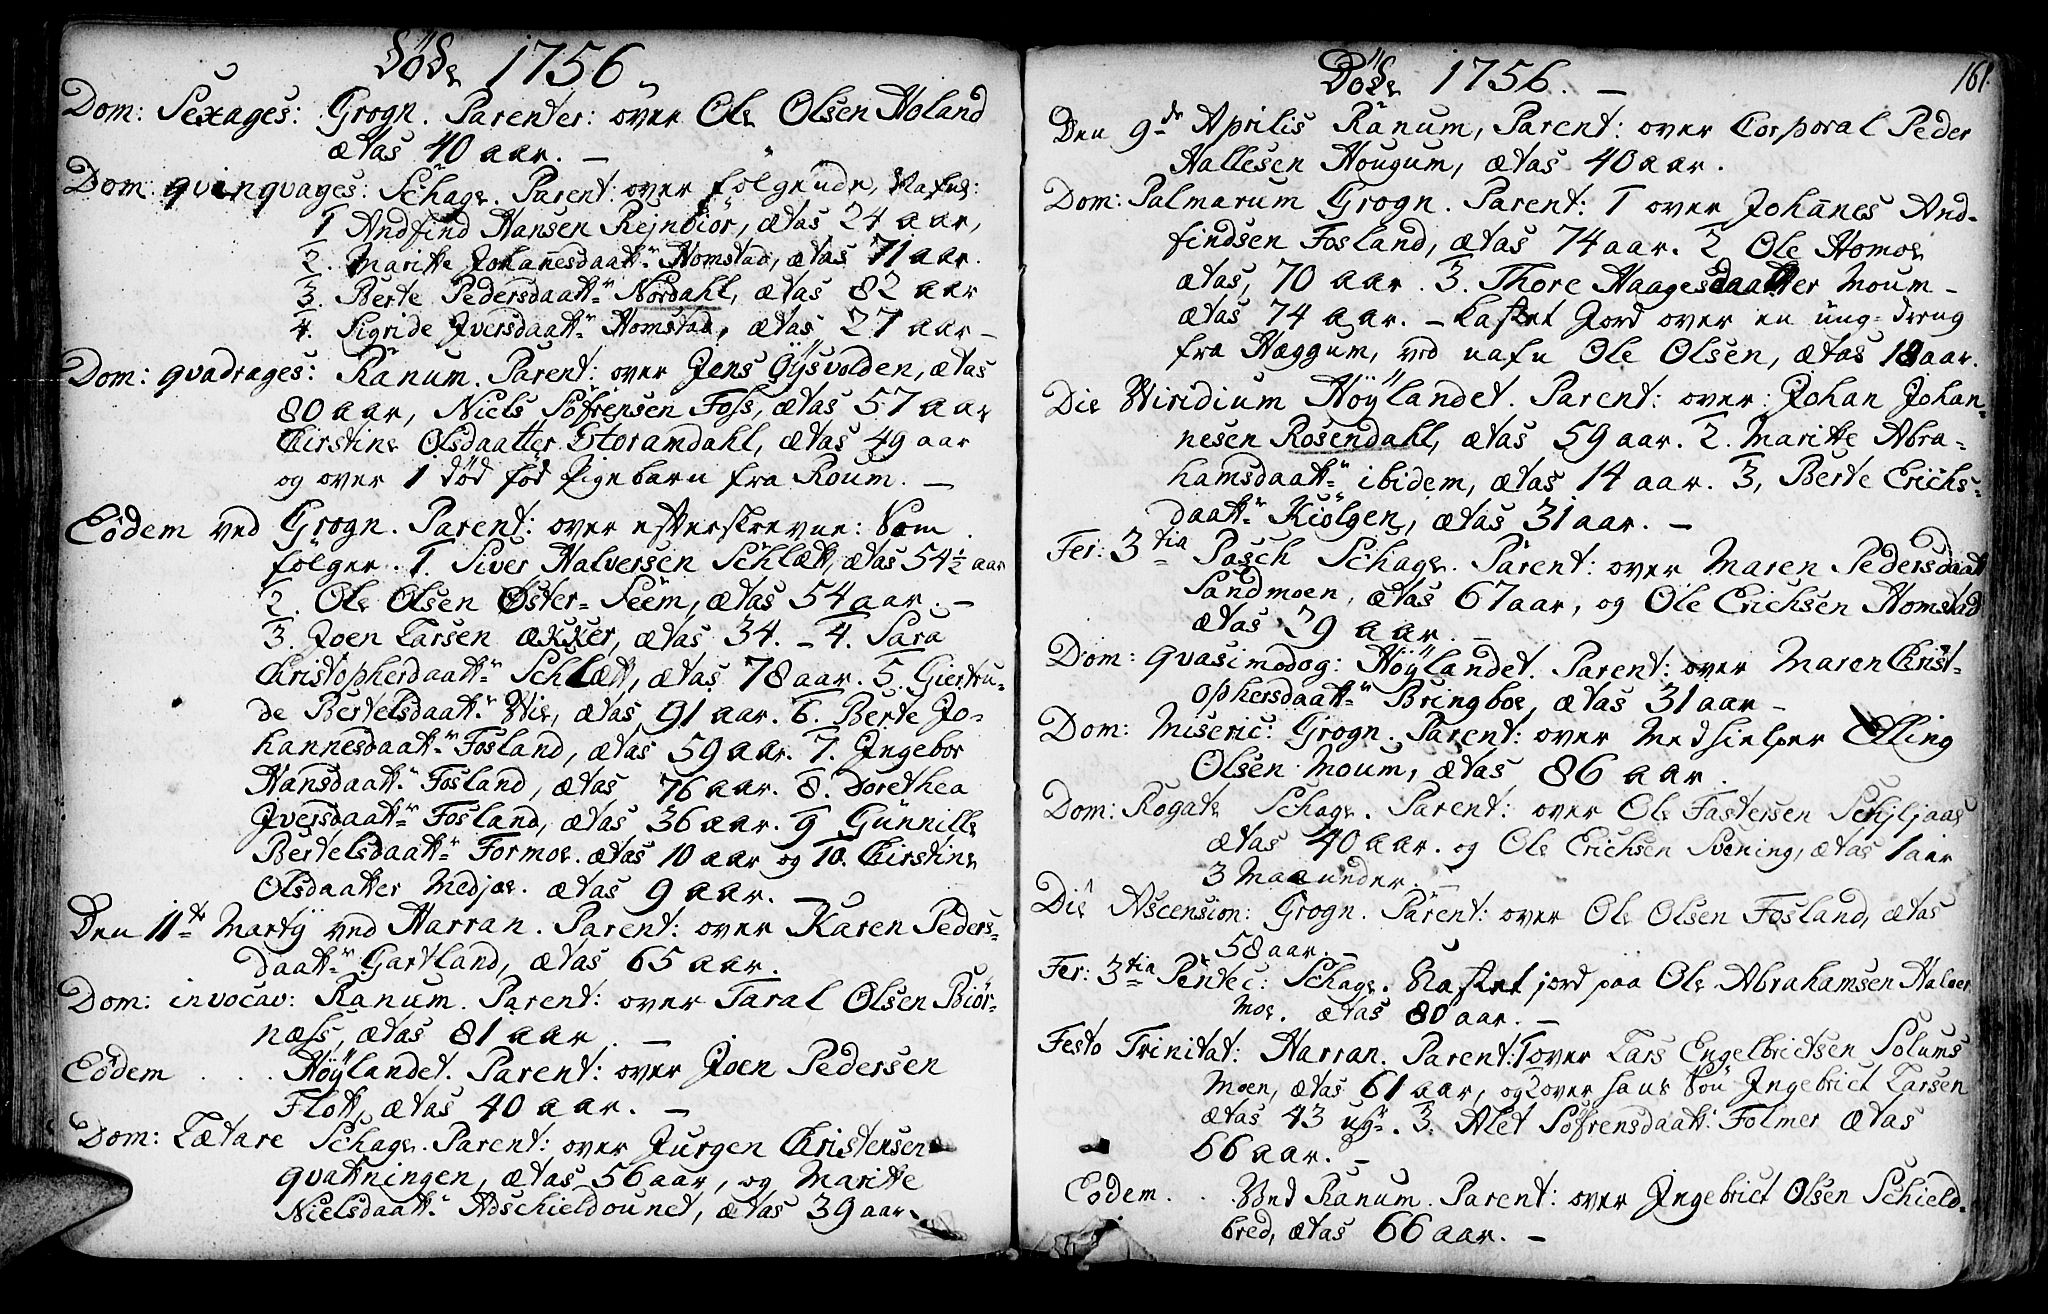 Döde 1756
Dom: Sexages: Grogn. Parenter: over Ole Olsen Höland
ætas 40 aar. —
Dom qvinqvages: Schage. Parent: over følgende, Nafne:
1 Andfind Hansen Rejnbiör, ætas 24 aar,
2. Maritte Johanesdaatt: Homstad, ætas 71 aar.
3. Berte Pedersdaatt: Nordahl, ætas 82 aar
4. Sigride Iversdaatt: Homstad, ætas 27 aar —
Dom: qvadrages: Ranum. Parent: over Jens Öÿsvolden, ætas
80 aar, Niels Söfrensen Foss, ætas 57 aar
Chirstine Olsdaatter Storamdahl, ætas 49 aar
og over 1 död föd Pigebarn fra Roum. —
Eodem ved Grogn. Parent: over efterskrevne: Som
følger. 1. Siver Halversen Schlett, ætas 54½ aar
2. Ole Olsen Øster=Seem, ætas 54 aar. —
3. Joen Larsen Ækker, ætas 34. — 4. Sara
Christopherdaatt: Schlett, ætas 78 aar. 5. Giertru-
de Bertelsdaatt: Vie, ætas 91 aar. 6. Berte Jo-
hannesdaatt: Fosland, ætas 59 aar. 7. Ingebor
Hansdaatt: Fosland, ætas 76 aar. 8. Dorethea
Iversdaatt: Fosland, ætas 36 aar. 9 Gunnille
Bertelsdaatt: Formoe. ætas 10 aar og 10. Chirstine
Olsdaatter Medjae. ætas 9 aar. —
Den 11te Martÿ ved Harran. Parent: over Karen Peders-
daatt: Gartland, ætas 65 aar.
Dom: invocav: Ranum. Parent: over Taral Olsen Biör-
næss, ætas 81 aar. —
Eodem . . . Höÿlandet. Parent: over Joen Pedersen
Flott, ætas 40 aar. —
Dom: Lætare Schage. Parent: over Jurgen Christensen
qvattningen, ætas 56 aar, og Maritte
Nielsdaatt: Adschieldounet, ætas 39 aar.
Döde 1756. —
161
Den 9de Aprilis Ranum, Parent: over Corporal Peder
Hallesen Hougum, ætas 40 aar.
Dom: Palmarum Grogn. Parent: 1 over Johanes And-
findsen Fosland, ætas 74 aar. 2 Ole Homoe
ætas, 70 aar. 3. Thore Haagesdaatter Moum —
ætas 74 aar. — kastet Jord over en ung=dreng
fra Hæggum, ved nafn Ole Olsen, ætas 18 aar.
Die Viridium Höÿlandet. Parent: over: Johan Johan-
nesen Rosendahl, ætas 59 aar. 2. Maritte Abra-
hamsdaatt: ibidem, ætas 14 aar. 3, Berte Erichs-
daatt: Kiölgen, ætas 31 aar. —
Fer: 3tia Pasch Schage. Parent: over Maren Pedersdaatt
Sandmoen, ætas 67 aar, og Ole Erichsen Homstad
ætas 29 aar. —
Dom: qvasimodog: Höÿlandet. Parent: over Maren Christ-
ophersdaatt: Bringboe, ætas 31 aar —
Dom: Miseric: Grogn. Parent: over Medhielper Elling
Olsen Moum, ætas 86 aar.
Dom: Rogate Schage. Parent: over Ole Fastersen Schjljaas
ætas 40 aar. og Ole Erichsen Svening, ætas 1 aar
3 Maaneder. —
Die Ascension: Grogn. Parent: over Ole Olsen Fosland, ætas
58 aar. —
Fer: 3tia Pentec: Schage. Kastet jord paa Ole Abrahamsen Halver
moe. ætas 80 aar. —
Festo Trinitat: Harran. Parent: 1 over Lars Engelbrictsen Solums
Moen, ætas 61 aar, og 2 over hans Sön Ingebrict Larsen
ætas 43 ug:. 3. Alet Söfrensdaatt: Folmer ætas
66 aar. —
Eodem . . Ved Ranum. Parent: over Ingebrict Olsen Schield-
bred, ætas 66 aar. —